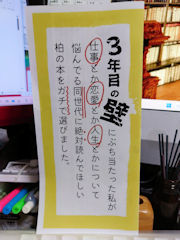 3年目の壁にぶち当たった私が
仕事とか恋愛とか人生とかについて
悩んでる同世代に絶対読んでほしい
柏の本をガチで選びました。